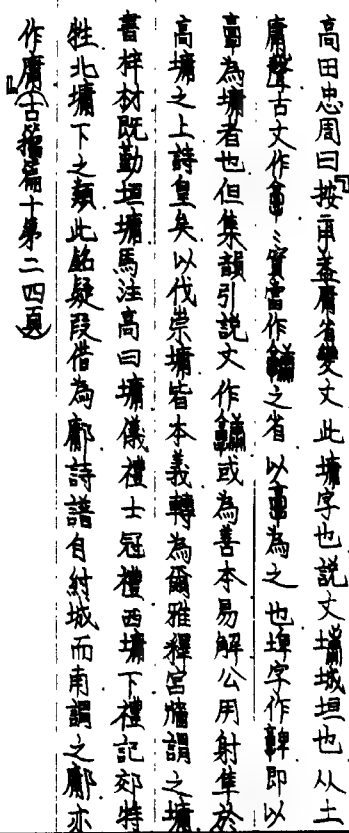 高田忠周曰『按𠅘蓋庸省變文此墉字也説文墉城垣也从土
庸聲古文作𩫖〻實當作之省以𩫖為之也埤字作䡟即以
𩫖為墉者也但集韻引説文作或為善本易解公用射隼於
高墉之上詩皇矣以伐崇墉皆本義轉為爾雅釋宮牆謂之墉
書梓材既勤垣墉馬注高曰墉儀禮士冠禮西墉下禮記郊特
牲北墉下之類此銘疑叚借為鄘詩譜自紂城而南謂之鄘亦
作庸』（古籀篇十第二四頁）